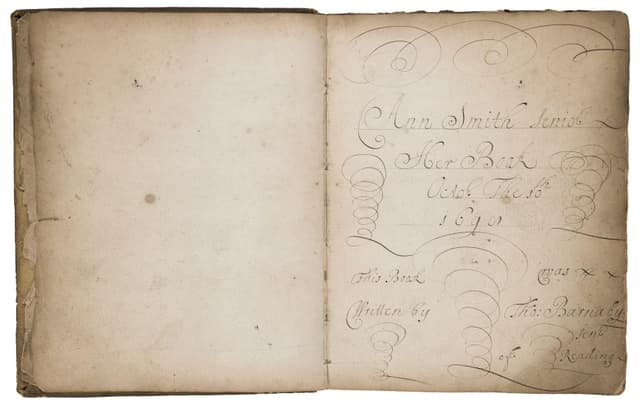 Ann Smith senior
Her Book
Octob. The 16th
1690
This Book was
Written by Tho: Barnaby
senr.
of Reading